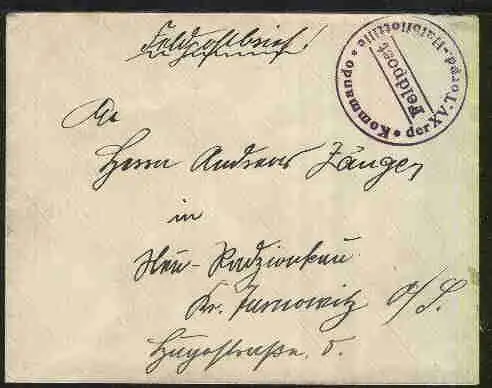 Feldpostbrief!
Kommando der XV. Torpd.-Halbflottille
Feldpost
An
Herrn Andreas Zänger
in
Neu-Radzionkau
Kr. Tarnowitz O/S.
Hugostraße.